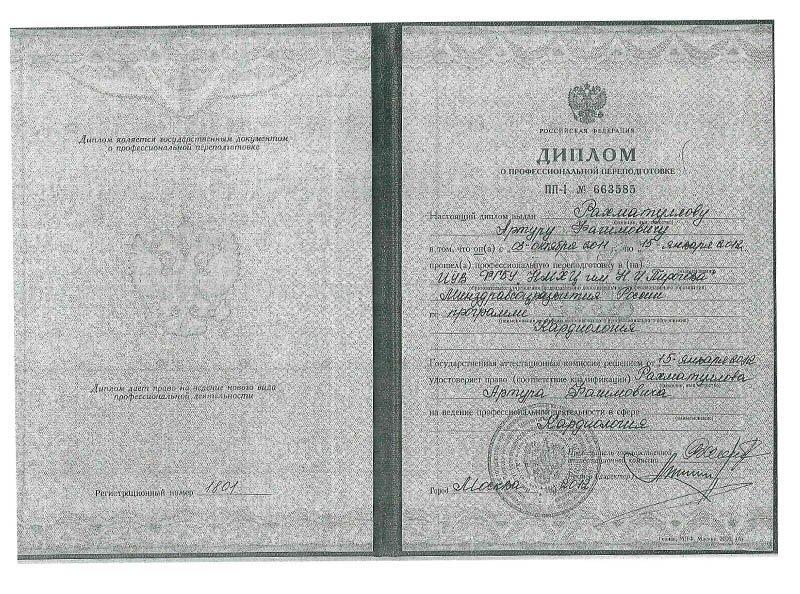 Диплом является государственным документом
о профессиональной переподготовке
Диплом дает право на ведение нового вида
профессиональной деятельности
Регистрационный номер 1801
РОССИЙСКАЯ ФЕДЕРАЦИЯ
ДИПЛОМ
О ПРОФЕССИОНАЛЬНОЙ ПЕРЕПОДГОТОВКЕ
ПП-I № 663585
Настоящий диплом выдан Рахматуллову
Артуру Фагимовичу
в том, что он(а) с 03 октября 2011 г. по 15 января 2012
прошел(а) профессиональную переподготовку в (на)
ИУВ ФГБУ НМХЦ им Н И Пирогова
Минздравсоцразвития России
по программе
Кардиология
Государственная аттестационная комиссия решением от 15 января 2012
удостоверяет право (соответствие квалификации) Рахматуллова
Артура Фагимовича
на ведение профессиональной деятельности в сфере
Кардиология
Председатель государственной
аттестационной комиссии
Ректор (директор)
Город Москва 2012